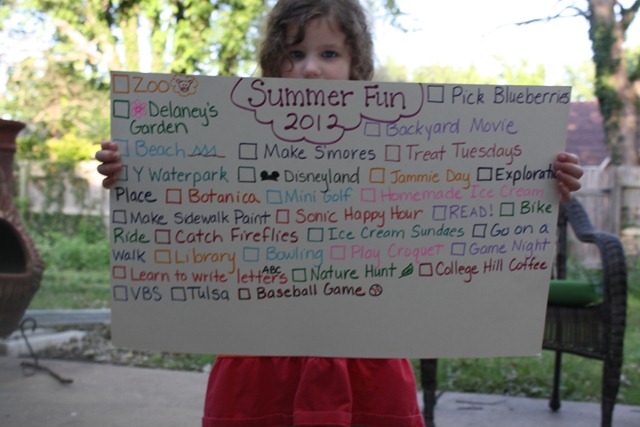 Summer Fun
2012
Zoo
Pick Blueberries
Delaney's
Garden
Backyard Movie
Beach Make S'mores Treat Tuesdays
Y Waterpark Disneyland Jammie Day Exploration
Place Botanica Mini Golf Homemade Ice Cream
Make Sidewalk Paint Sonic Happy Hour READ! Bike
Ride Catch Fireflies Ice Cream Sundaes Go on a
Walk Library Bowling Play Croquet Game Night
Learn to write letters ABC Nature Hunt College Hill Coffee
VBS Tulsa Baseball Game